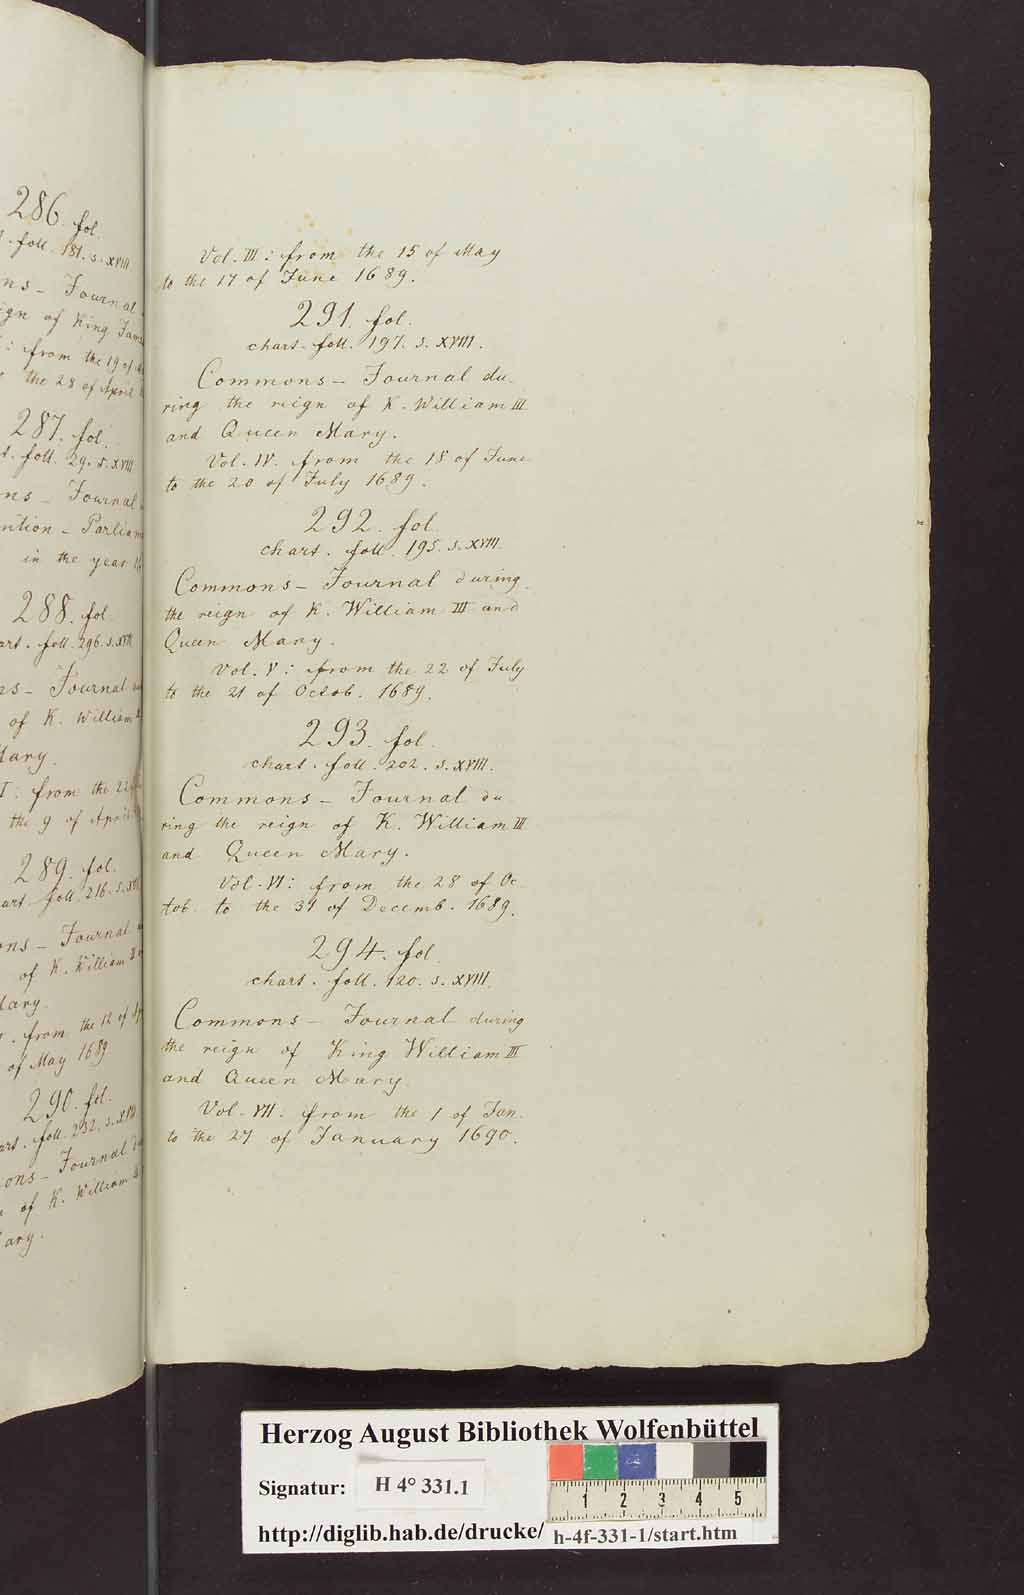 286. fol.
foll. 181. s. XVIII
ns - Journal
ign of King
: from the 19 of
the 28 of April
287. fol.
foll. 29. s. XVIII
ns - Journal
in the year
288. fol.
art. foll. 296. s. XVIII
ns - Journal
of K. William
Mary.
I: from the 22
the 9 of April
289. fol.
art. foll. 216. s.
ons - Journal
of K. William
Mary.
from the 12 of
of May 1689
290. fol.
art. foll. 232. s. XVIII
ons - Journal
of K. William
ary.
Vol. III: from the 15 of May
to the 17 of June 1689.
291. fol.
chart. foll. 197. s. XVIII.
Commons - Journal du-
ring the reign of K. William III
and Queen Mary.
Vol. IV. from the 18 of June
to the 20 of July 1689.
292. fol.
chart. foll. 195. s. XVIII.
Commons - Journal during
the reign of K. William III and
Queen Mary.
Vol. V: from the 22 of July
to the 21 of Octob. 1689.
293. fol.
chart. foll. 202. s. XVIII.
Commons - Journal du-
ring the reign of K. William III
and Queen Mary.
Vol. VI: from the 28 of Oc-
tob. to the 31 of Decemb. 1689.
294. fol.
chart. foll. 120. s. XVIII.
Commons - Journal during
the reign of King William III
and Queen Mary.
Vol. VII. from the 1 of Jan.
to the 27 of January 1690.
Herzog August Bibliothek Wolfenbüttel
Signatur: H 4° 331.1
1 2 3 4 5
http://diglib.hab.de/drucke/ h-4f-331-1/start.htm